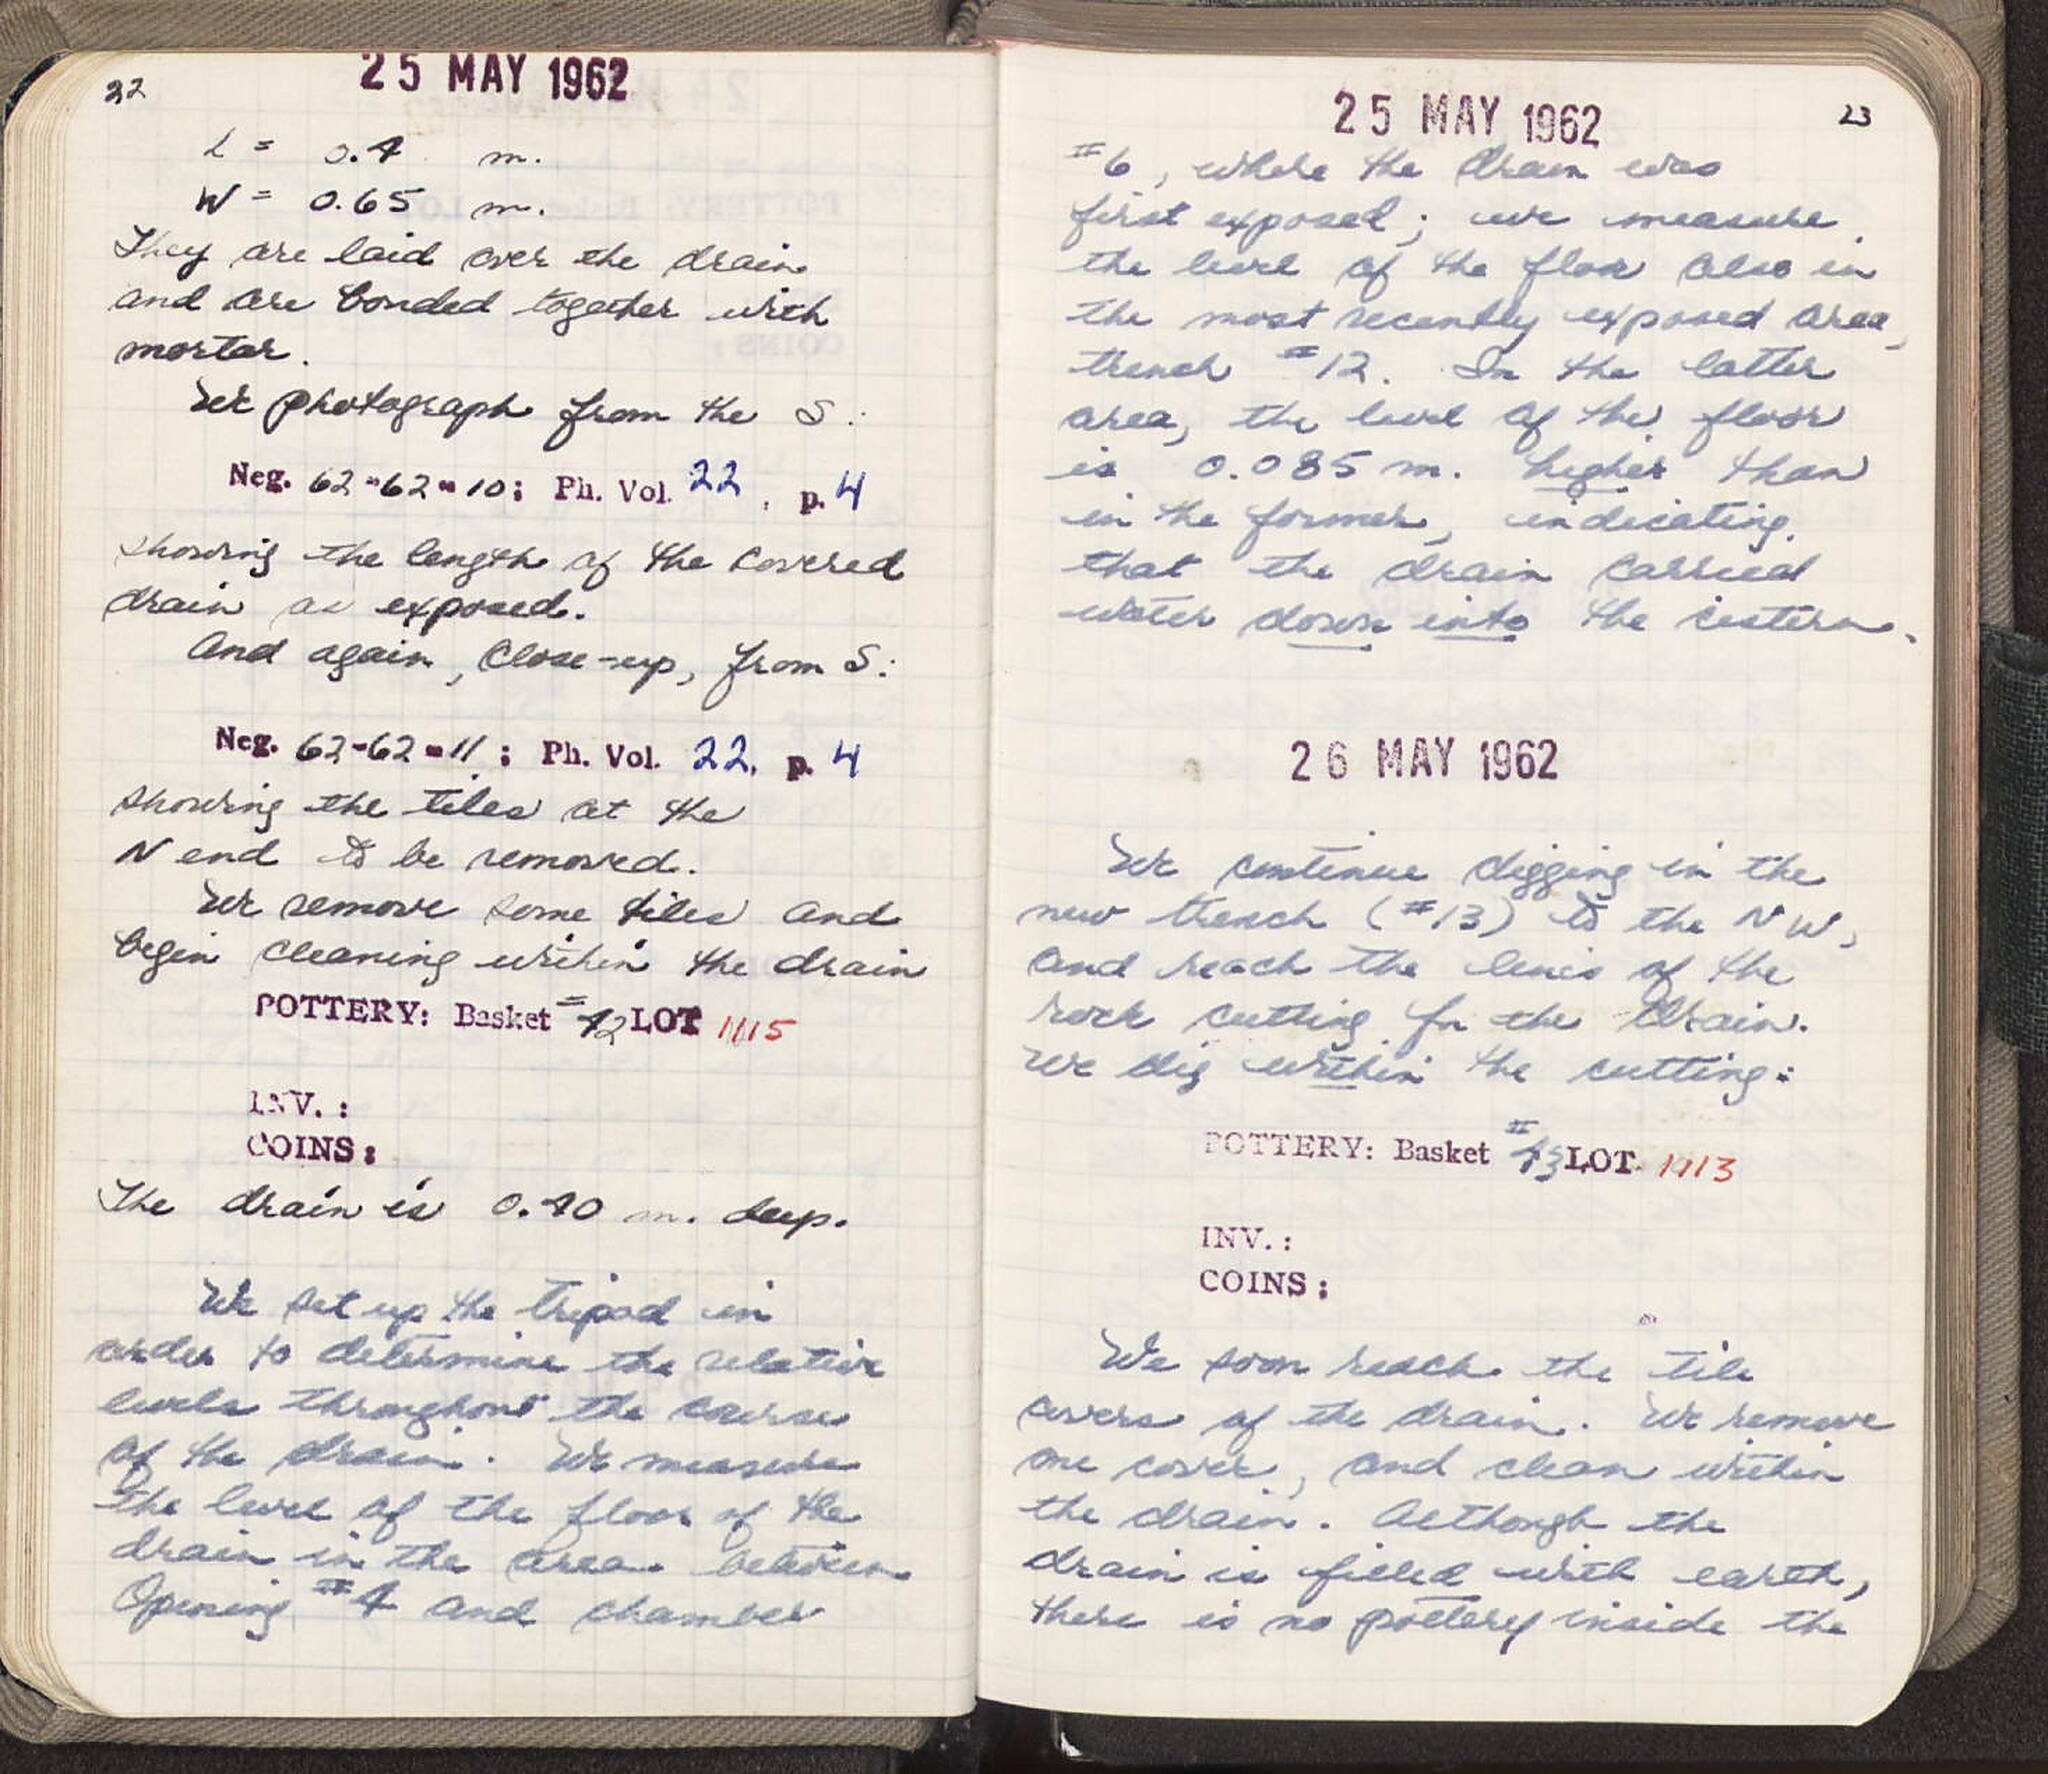 22
25 MAY 1962
L = 0.4 m.
W = 0.65 m.
They are laid over the drain
and are bonded together with
mortar.
We photograph from the S:
Neg. 62-62-10; Ph. Vol. 22, p. 4
showing the length of the covered
drain as exposed.
And again, close-up, from S:
Neg. 62-62-11; Ph. Vol. 22, p. 4
showing the tiles at the
N end to be removed.
We remove some tiles and
begin cleaning within the drain
POTTERY: Basket #42 LOT 1115
INV.:
COINS:
The drain is 0.40 m. deep.
We set up the tripod in
order to determine the relative
levels throughout the course
of the drain. We measure
the level of the floor of the
drain in the area between
Opening #4 and chamber
25 MAY 1962
23
#6, where the drain was
first exposed; we measure
the level of the floor also in
the most recently exposed area,
trench #12. In the latter
area, the level of the floor
is 0.085 m. higher than
in the former, indicating
that the drain carried
water down into the cistern.
26 MAY 1962
We continue digging in the
new trench (#13) to the NW,
and reach the lines of the
rock cutting for the drain.
We dig within the cutting:
POTTERY: Basket #43 LOT 1113
INV.:
COINS:
We soon reach the tile
covers of the drain. We remove
one cover, and clean within
the drain. Although the
drain is filled with earth,
there is no pottery inside the